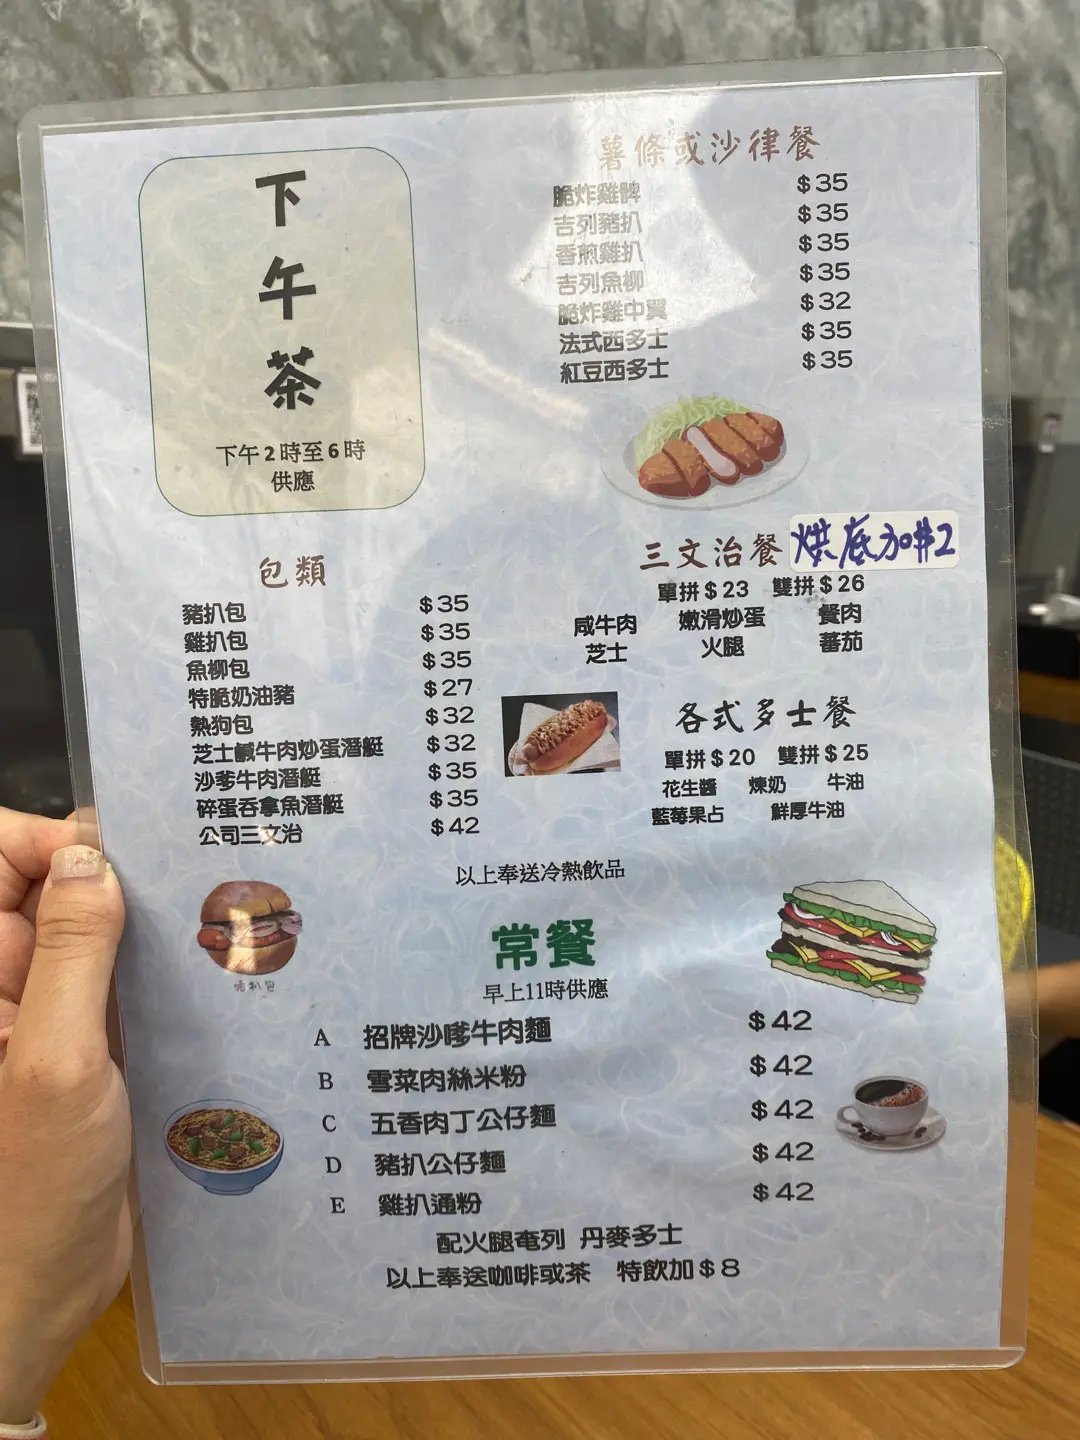 下
午
茶
下午2時至6時
供應
薯條或沙律餐
脆炸雞髀 $35
吉列豬扒 $35
香煎雞扒 $35
吉列魚柳 $35
脆炸雞中翼 $32
法式西多士 $35
紅豆西多士 $35
包類
豬扒包 $35
雞扒包 $35
魚柳包 $35
特脆奶油豬 $27
熱狗包 $32
芝士鹹牛肉炒蛋潛艇 $32
沙爹牛肉潛艇 $35
碎蛋吞拿魚潛艇 $35
公司三文治 $42
三文治餐 烘底加$2
單拼$23 雙拼$26
咸牛肉 嫩滑炒蛋 餐肉
芝士 火腿 蕃茄
各式多士餐
單拼$20 雙拼$25
花生醬 煉奶 牛油
藍莓果占 鮮厚牛油
以上奉送冷熱飲品
常餐
早上11時供應
A 招牌沙嗲牛肉麵 $42
B 雪菜肉絲米粉 $42
C 五香肉丁公仔麵 $42
D 豬扒公仔麵 $42
E 雞扒通粉 $42
配火腿奄列 丹麥多士
以上奉送咖啡或茶 特飲加$8